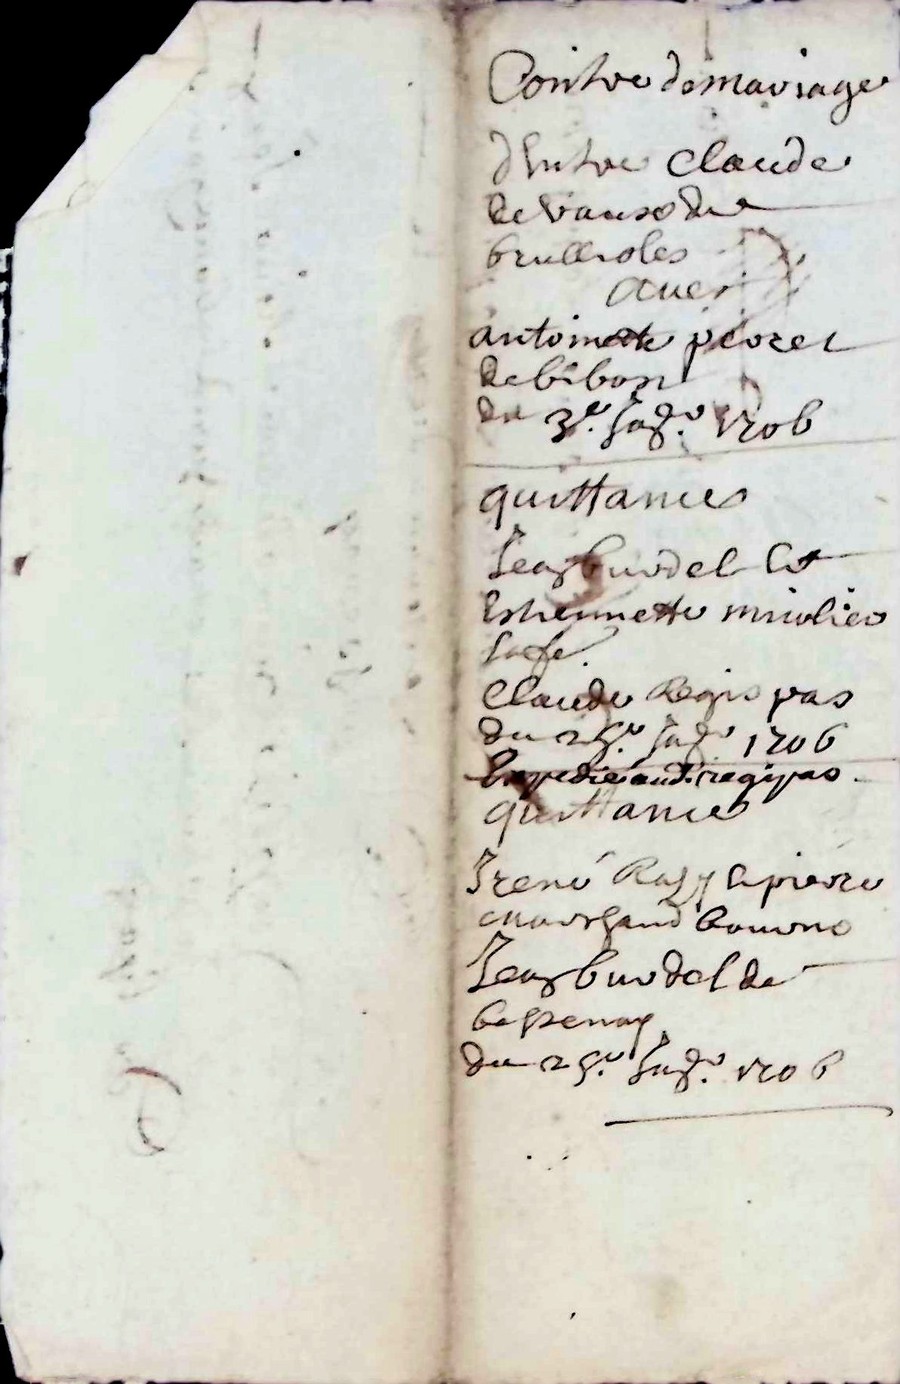 Contre de mariage
d'Entre Claude
de vauxo du
brullioles
auer
antoinette pierer
de bibon
du 3e. Jaz.r 1706
quittances
Jean burdel Et
Estiennette miolieo
sa fe.
Claude Regis pas
du 25.e Ja.r 1706
Expedié aud. regipas
quittance
Irené Ray Et pierre
marchand Comme
Jean burdel de
bessenay
du 25.e Ja.r 1706